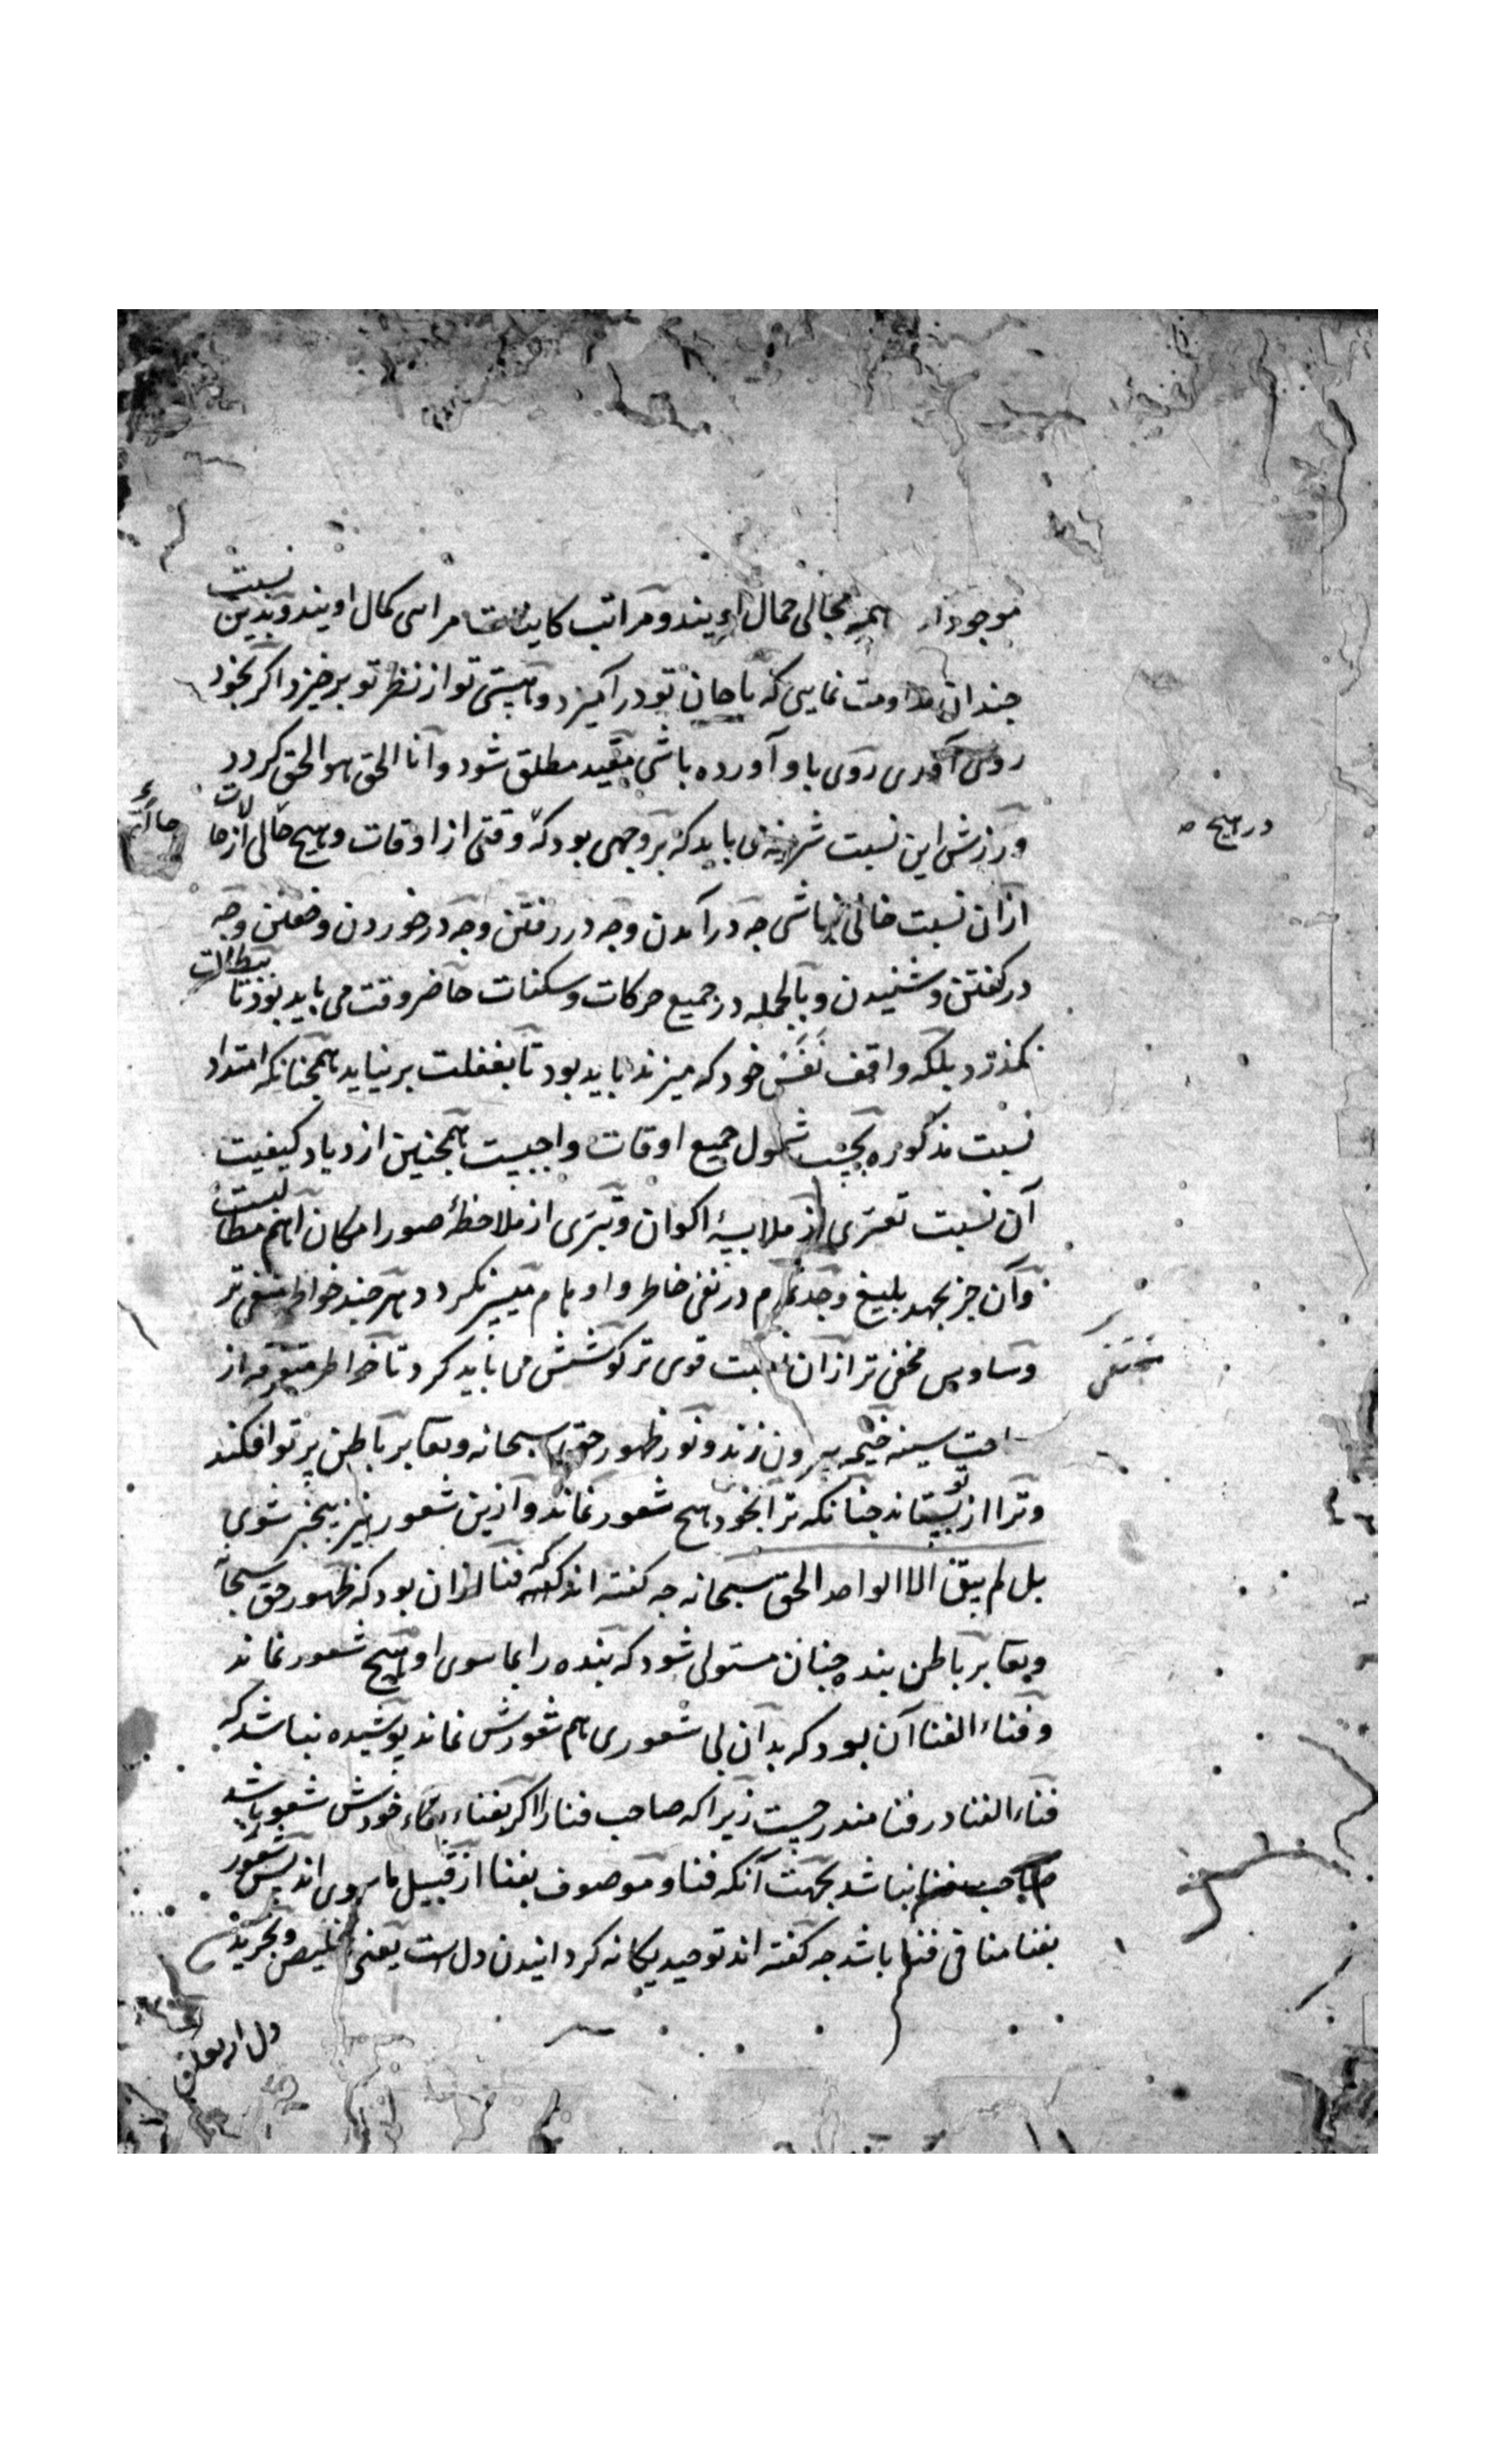 موجودات همه مجالی جمال اویند و مراتب کاینات مرائی کمال اویند و بدین نسبت
چندان مداومت نمایی که با جان تو درآمیزد و هستی تو از نظر تو برخیزد اگر بخود
روی آوری روی باو آورده باشی مقید مطلق شود و انا الحق هو الحق گردد
ورزش این نسبت شریفه می باید که بر وجهی بود که وقتی از اوقات و هیچ حالی از حالات
در هیچ
از آن نسبت خالی نباشی چه در آمدن و چه در رفتن و چه در خوردن و خفتن و چه
در گفتن و شنیدن و بالجمله در جمیع حرکات و سکنات حاضر وقت می باید بود تا ببطالت
نگذرد بلکه واقف نفس خود که میزند باید بود تا بغفلت برنیاید همچنانکه امتداد
نسبت مذکوره بحسب شمول جمیع اوقات واجبست همچنین ازدیاد کیفیت
آن نسبت تعری از ملابسهٔ اکوان و تبری از ملاحظهٔ صور امکان اهم مطالبست
و آن جز بجهد بلیغ و جد تمام در نفی خاطر و اوهام میسر نگردد هرچند خواطر منتفی تر
و ساوس مخفی تر از آن نسبت قوی تر کوشش می باید کرد تا خواطر متفرقه از
ساحت سینه خیمه بیرون زند و نور ظهور حق سبحانه و تعا بر باطن پرتو افکند
و ترا از تو بستاند چنانکه ترا بخود هیچ شعور نماند و از این شعور نیز بیخبر شوی
بل لم یبق الا الواحد الحق سبحانه چه گفته اند که فنا آن بود که ظهور حق سبحا
و تعا بر باطن بنده چنان مستولی شود که بنده را بماسوی او هیچ شعور نماند
و فناء الفنا آن بود که بدان بی شعوری هم شعورش نماند پوشیده نباشد که
فناء الفنا در فنا مندرجست زیرا که صاحب فنا را اگر بفناء خودش شعور باشد
صاحب فنا نباشد بجهت آنکه فنا و موصوف بفنا از قبیل ماسوی اند پس شعور
بفنا منافی فنا باشد چه گفته اند توحید یگانه گردانیدن دل است یعنی تخلیص و تجرید
دل از تعلق